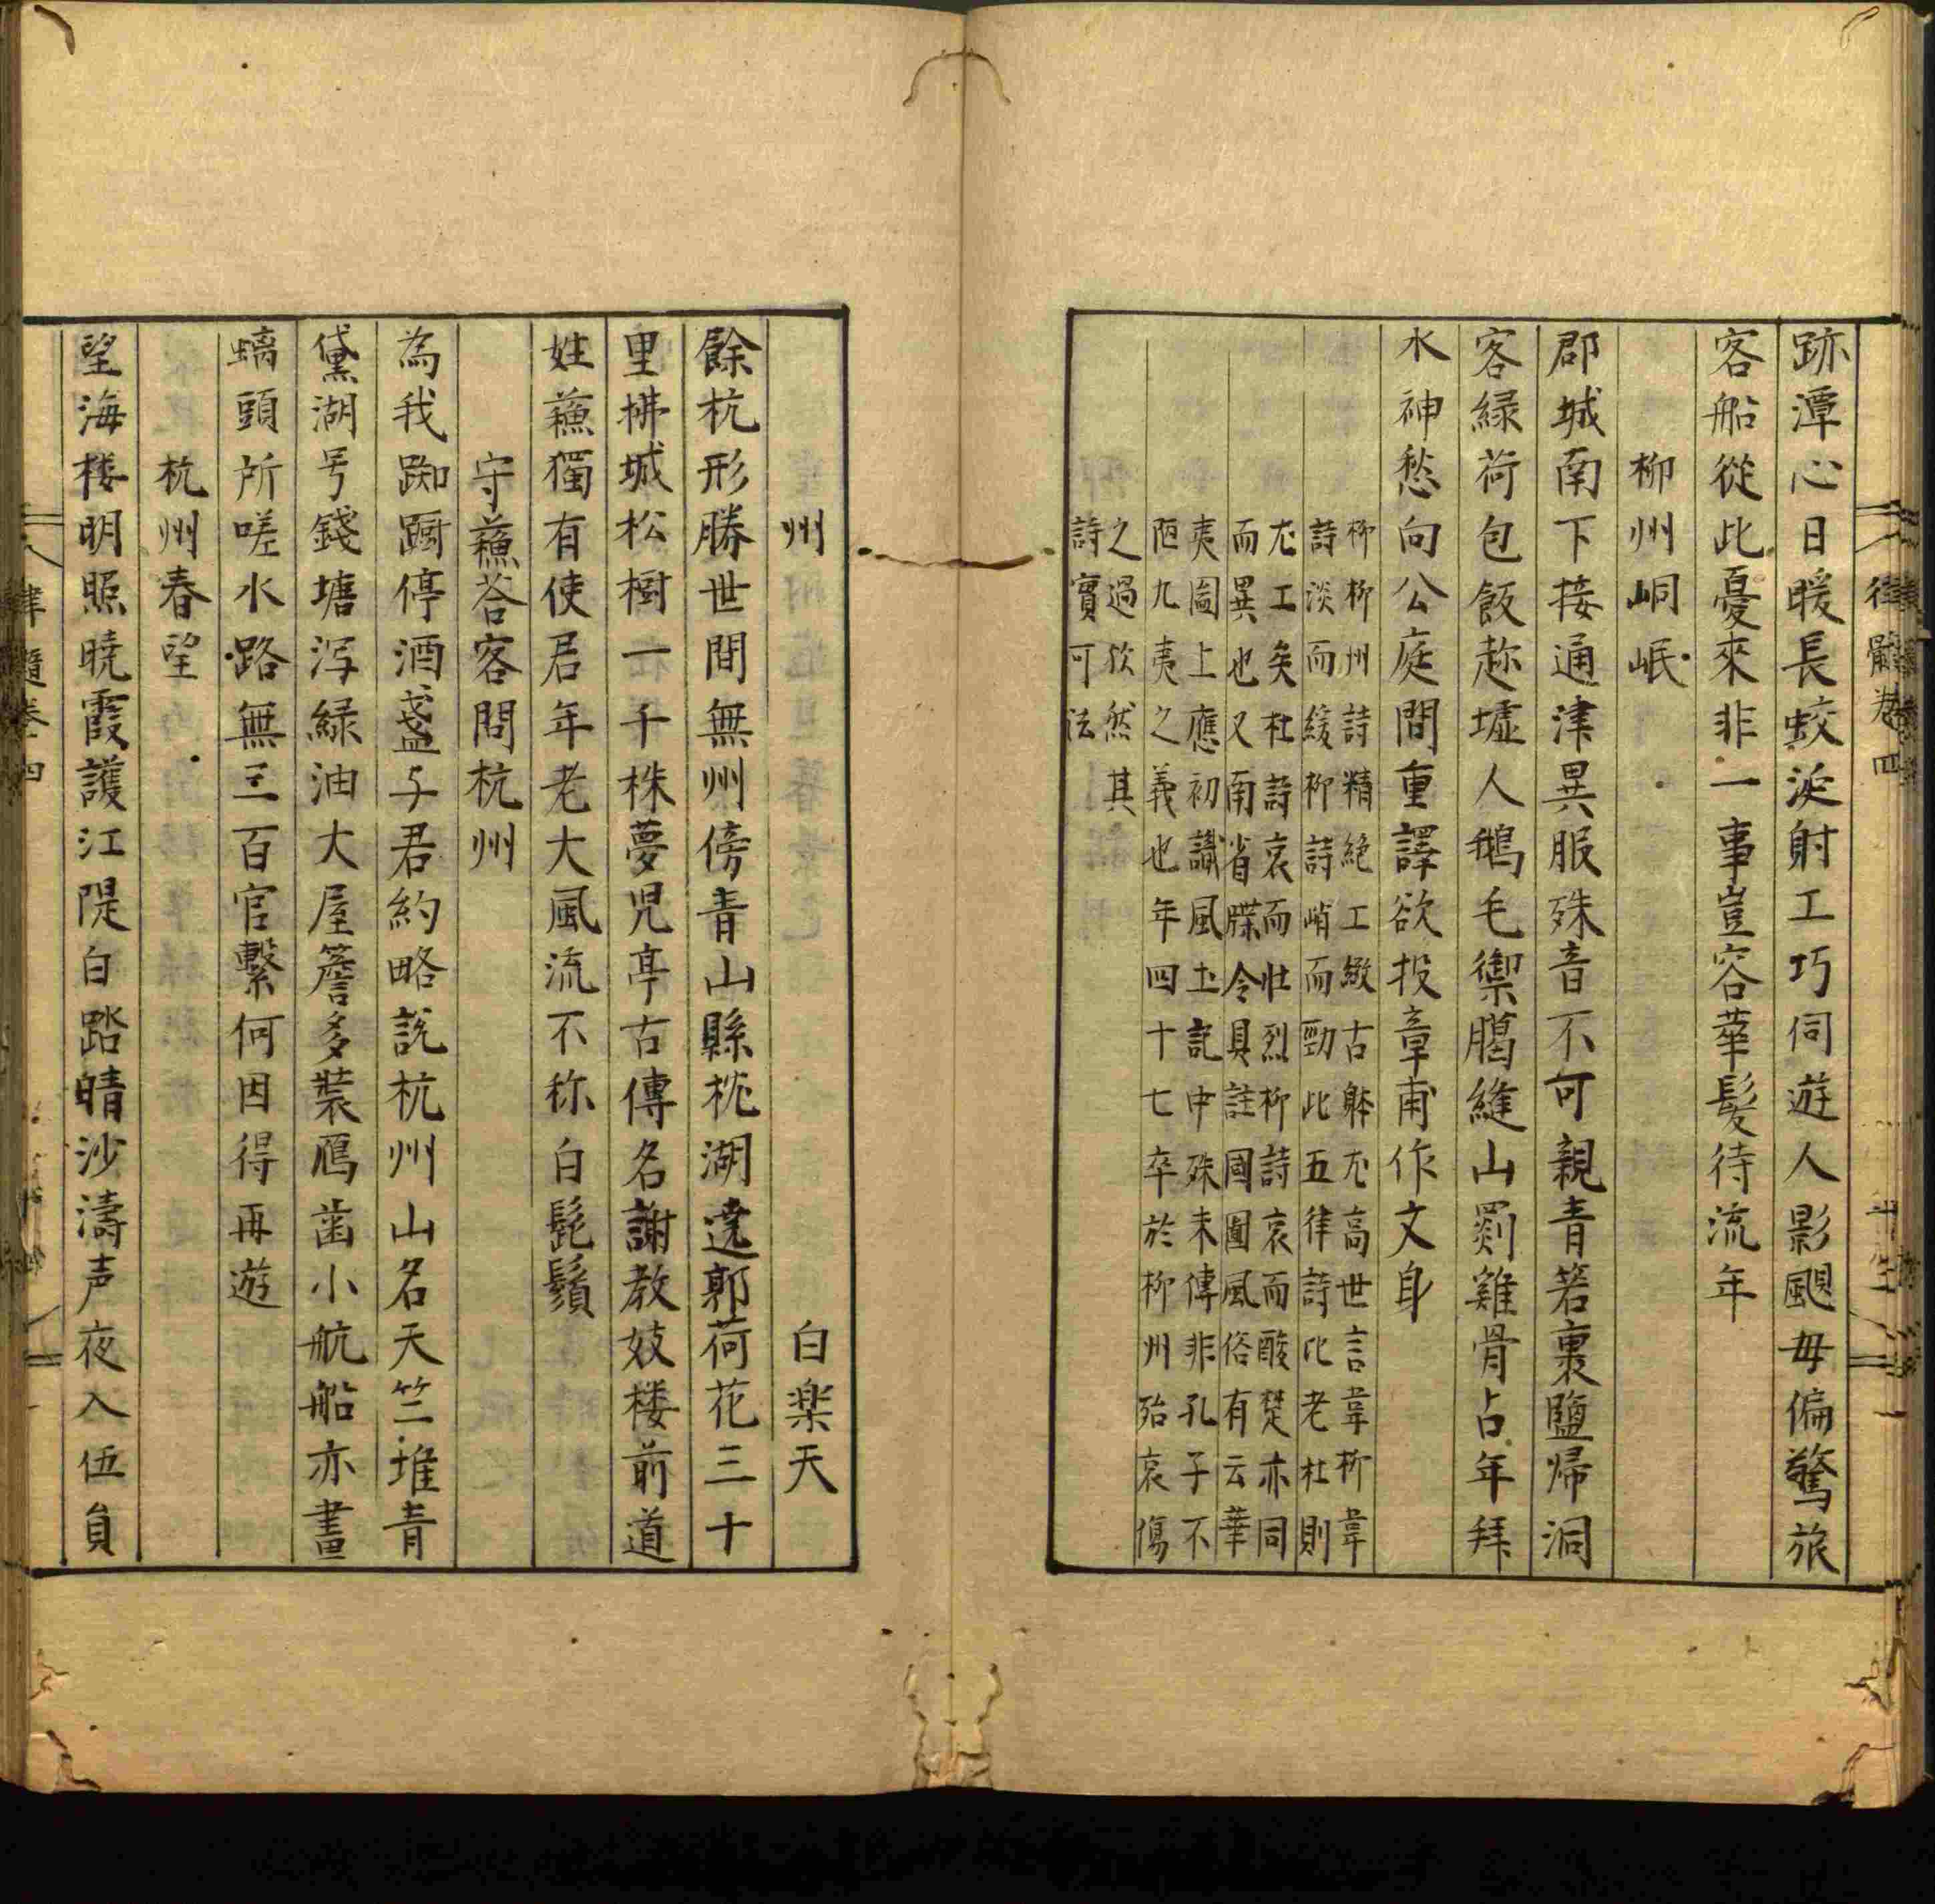 律髓卷四
跡潭心日暖長蛟涎射工巧伺遊人影颶毋偏驚旅
客船從此憂來非一事豈容華髮待流年
柳州峒岷
郡城南下接通津異服殊音不可親青箬裹鹽歸洞
客緑荷包飯趂墟人鵝毛禦臈縫山罽雞骨占年拜
水神愁向公庭間重譯欲投章甫作文身
柳柳州詩精絶工緻古躰尤高世言韋柳韋
詩淡而緩柳詩峭而勁此五律詩比老杜則
尤工矣杜詩哀而壮烈柳詩哀而酸楚亦同
而異也又南省牒令具註國圖風俗有云華
夷圖上應初識風土記中殊未傳非孔子不
陋九夷之義也年四十七卒於柳州殆哀傷
之過欤然其
詩實可法
州 白楽天
餘杭形勝世間無州傍青山縣枕湖遶郭荷花三十
里拂城松樹一千株夢児亭古傳名謝教妓楼前道
姓蘓獨有使君年老大風流不称白髭鬚
守蘓荅客問杭州
為我踟蹰停酒盞与君約略說杭州山名天竺堆青
黛湖号錢塘泻緑油大屋簷多裝鴈齒小航船亦畫
螭頭所嗟水路無三百官繫何因得再遊
杭州春望
望海楼明照曉霞護江隄白踏晴沙濤声夜入伍員
律髓卷四